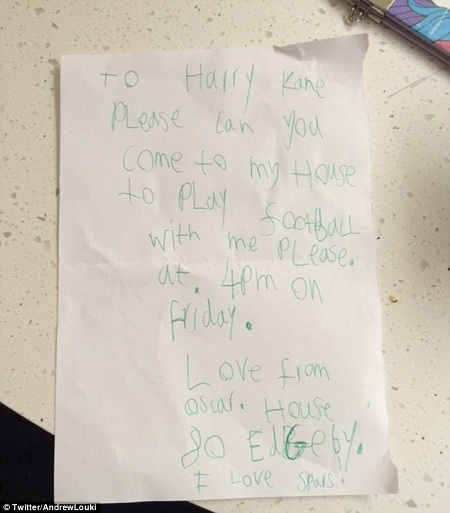 to Harry Kane
PLease can you
come to my House
to PLay football
with me PLease.
at. 4pm on
friday.
Love from
oscar. House
80 EdGeby.
I Love spurs!
© Twitter/AndrewLouki